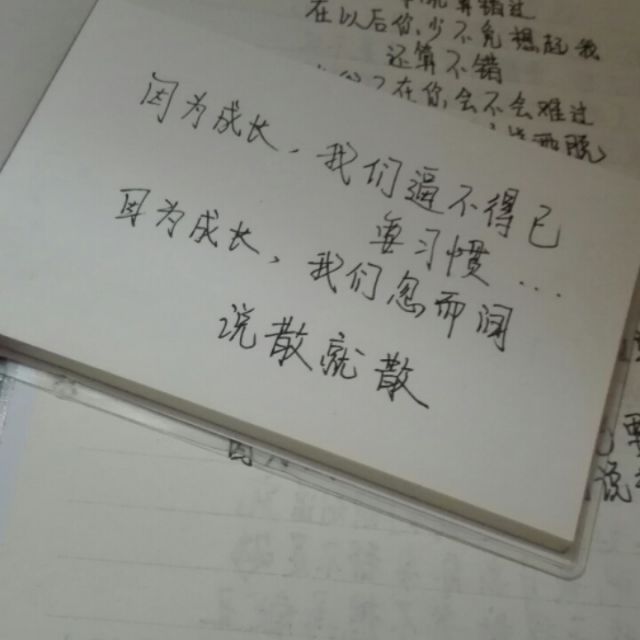 在以后你少不免想起我
还算不错
不在你会不会难过
洒脱
因为成长、我们逼不得已
要习惯…
因为成长、我们忽而间
说散就散